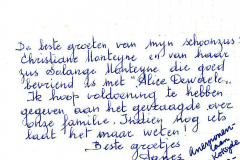 De beste groeten van mijn schoonzus:
Christiane Monteyne en van haar
zus Solange Monteyne die goed
bevriend is met "Alice Dewaele".
Ik hoop voldoening te hebben
gegeven aan het gevraagde over
onze familie. Indien nog iets
laat het maar weten!
Beste groetjes
Agnes